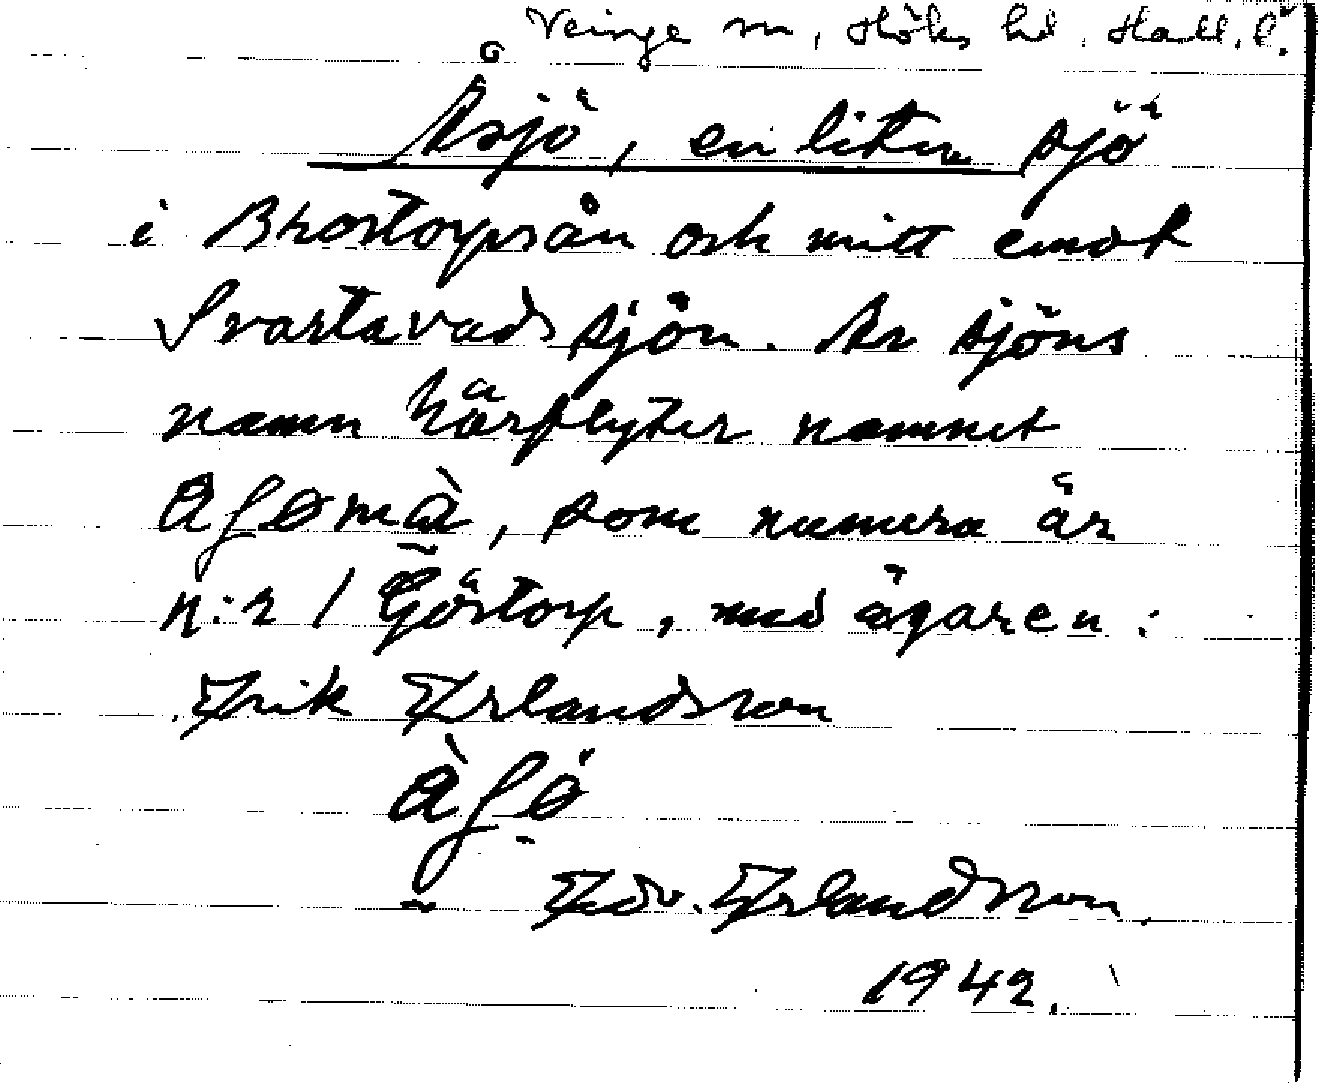 Veinge sn, Höks hd. Hall. l.
Åsjö, en liten sjö
i Brostorpsån och mitt emot
Svartavadssjön. Av sjöns
namn härflyter namnet
som numera är
n:r 1 Göstorp, med ägaren:
Erik Erlandsson
Edv. Erlandsson.
1942.